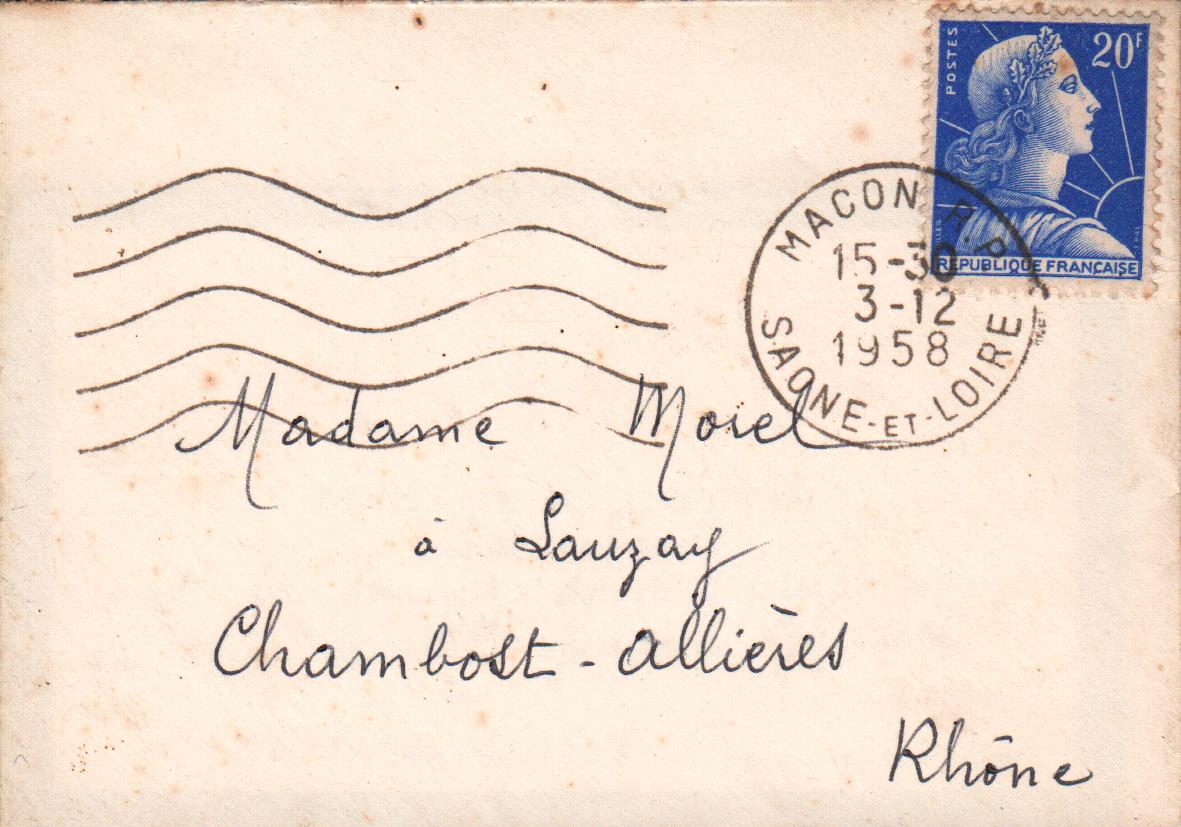 POSTES
20F
REPUBLIQUE FRANÇAISE
MACON R.P.
15-30
3-12
1958
SAONE-ET-LOIRE
Madame Morel
à Lauzay
Chambost-Allières
Rhône